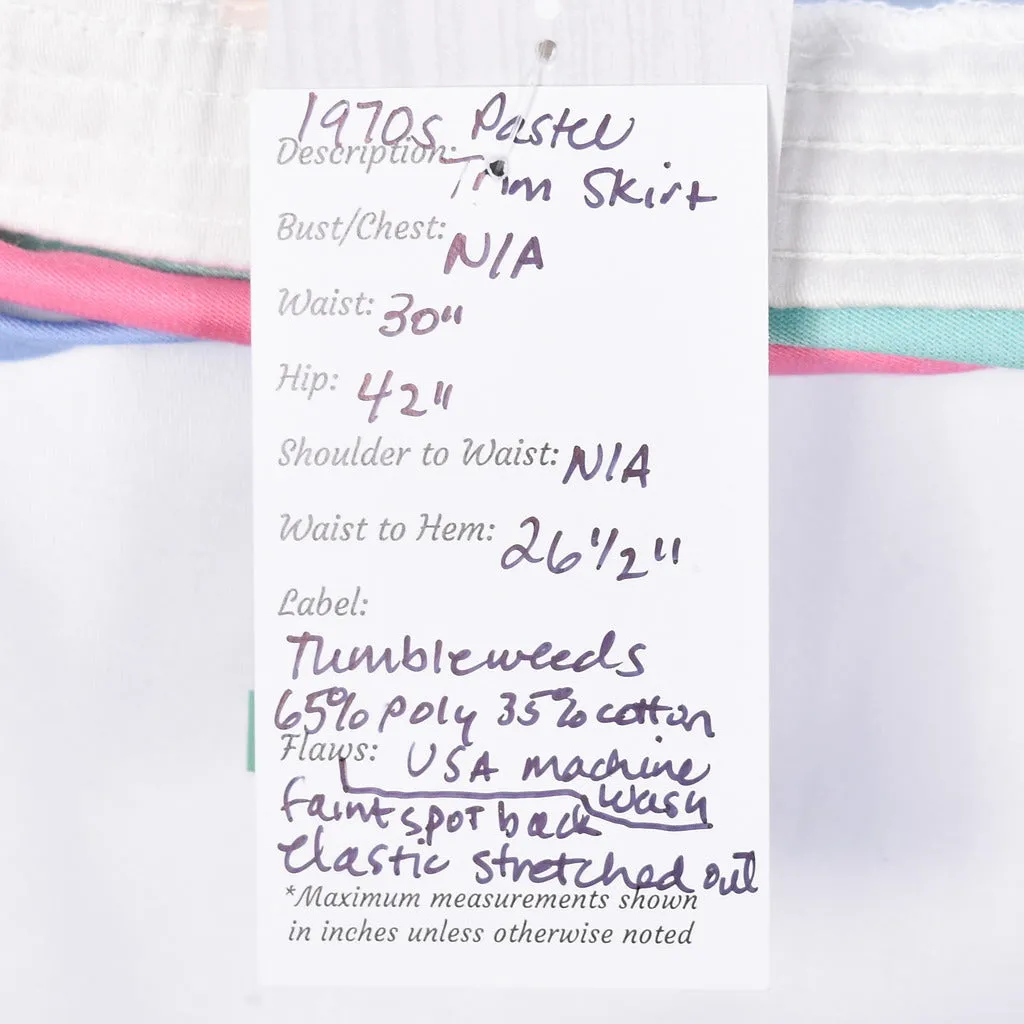 1970s Pastel
Description: Trim Skirt
Bust/Chest: N/A
Waist: 30"
Hip: 42"
Shoulder to Waist: N/A
Waist to Hem: 26 1/2"
Label:
Tumbleweeds
65% poly 35% cotton
Flaws: USA machine
wash
faint spot back
elastic stretched out
*Maximum measurements shown
in inches unless otherwise noted